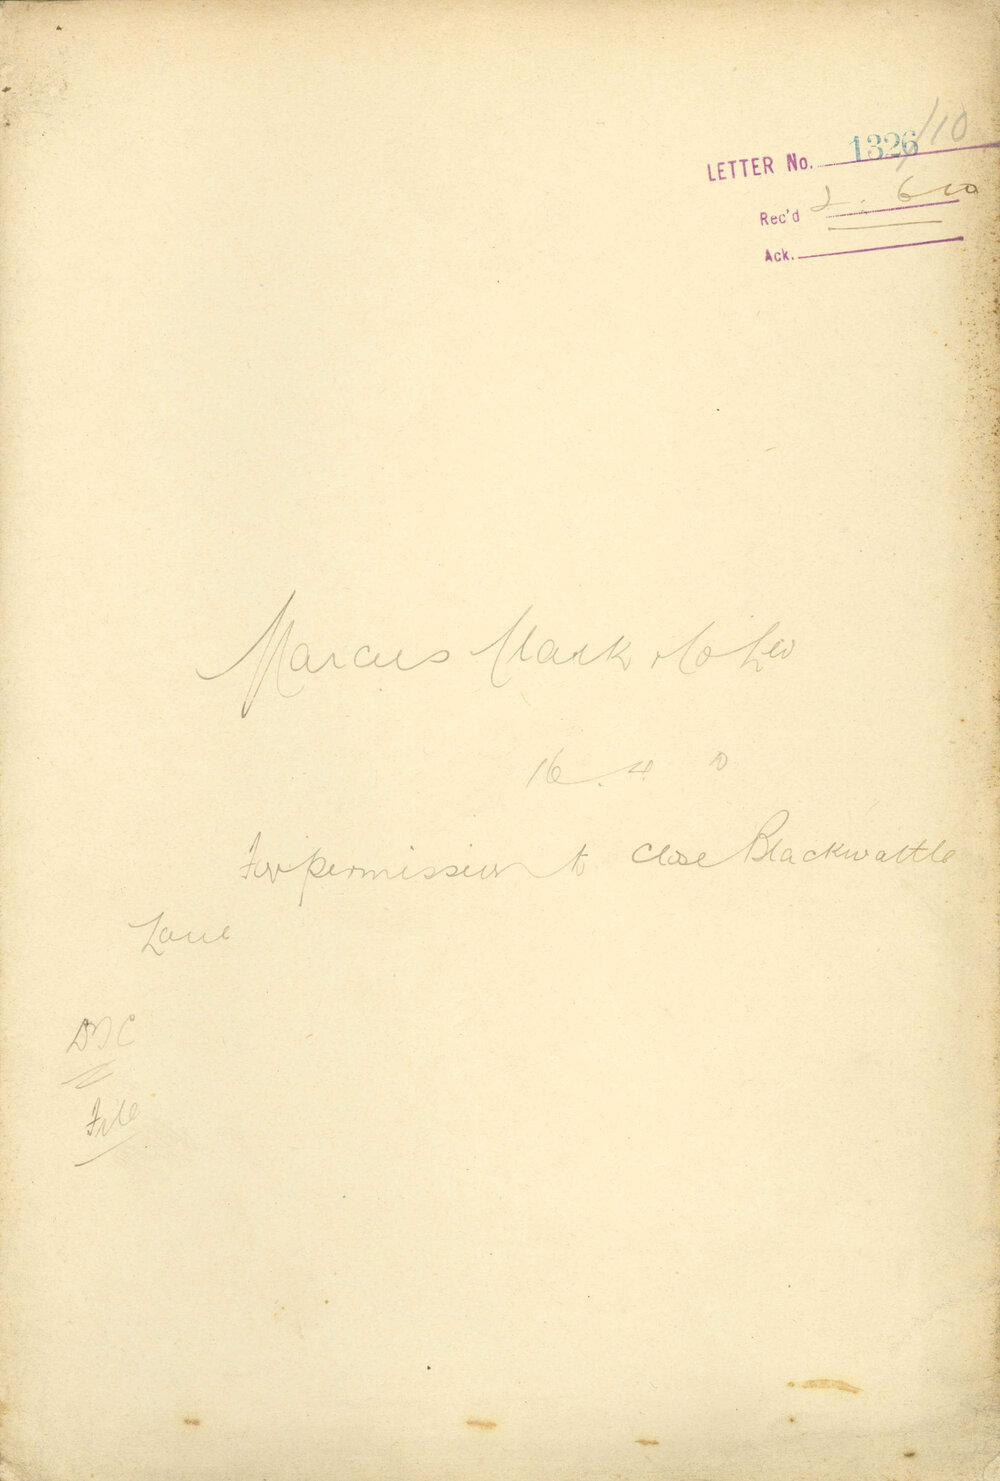 LETTER No. 1326/10
Rec'd 2. 6 10
Ack.
Marcus Clark & Co Ld
16. 4. 10
For permission to close Blackwattle
Lane
File